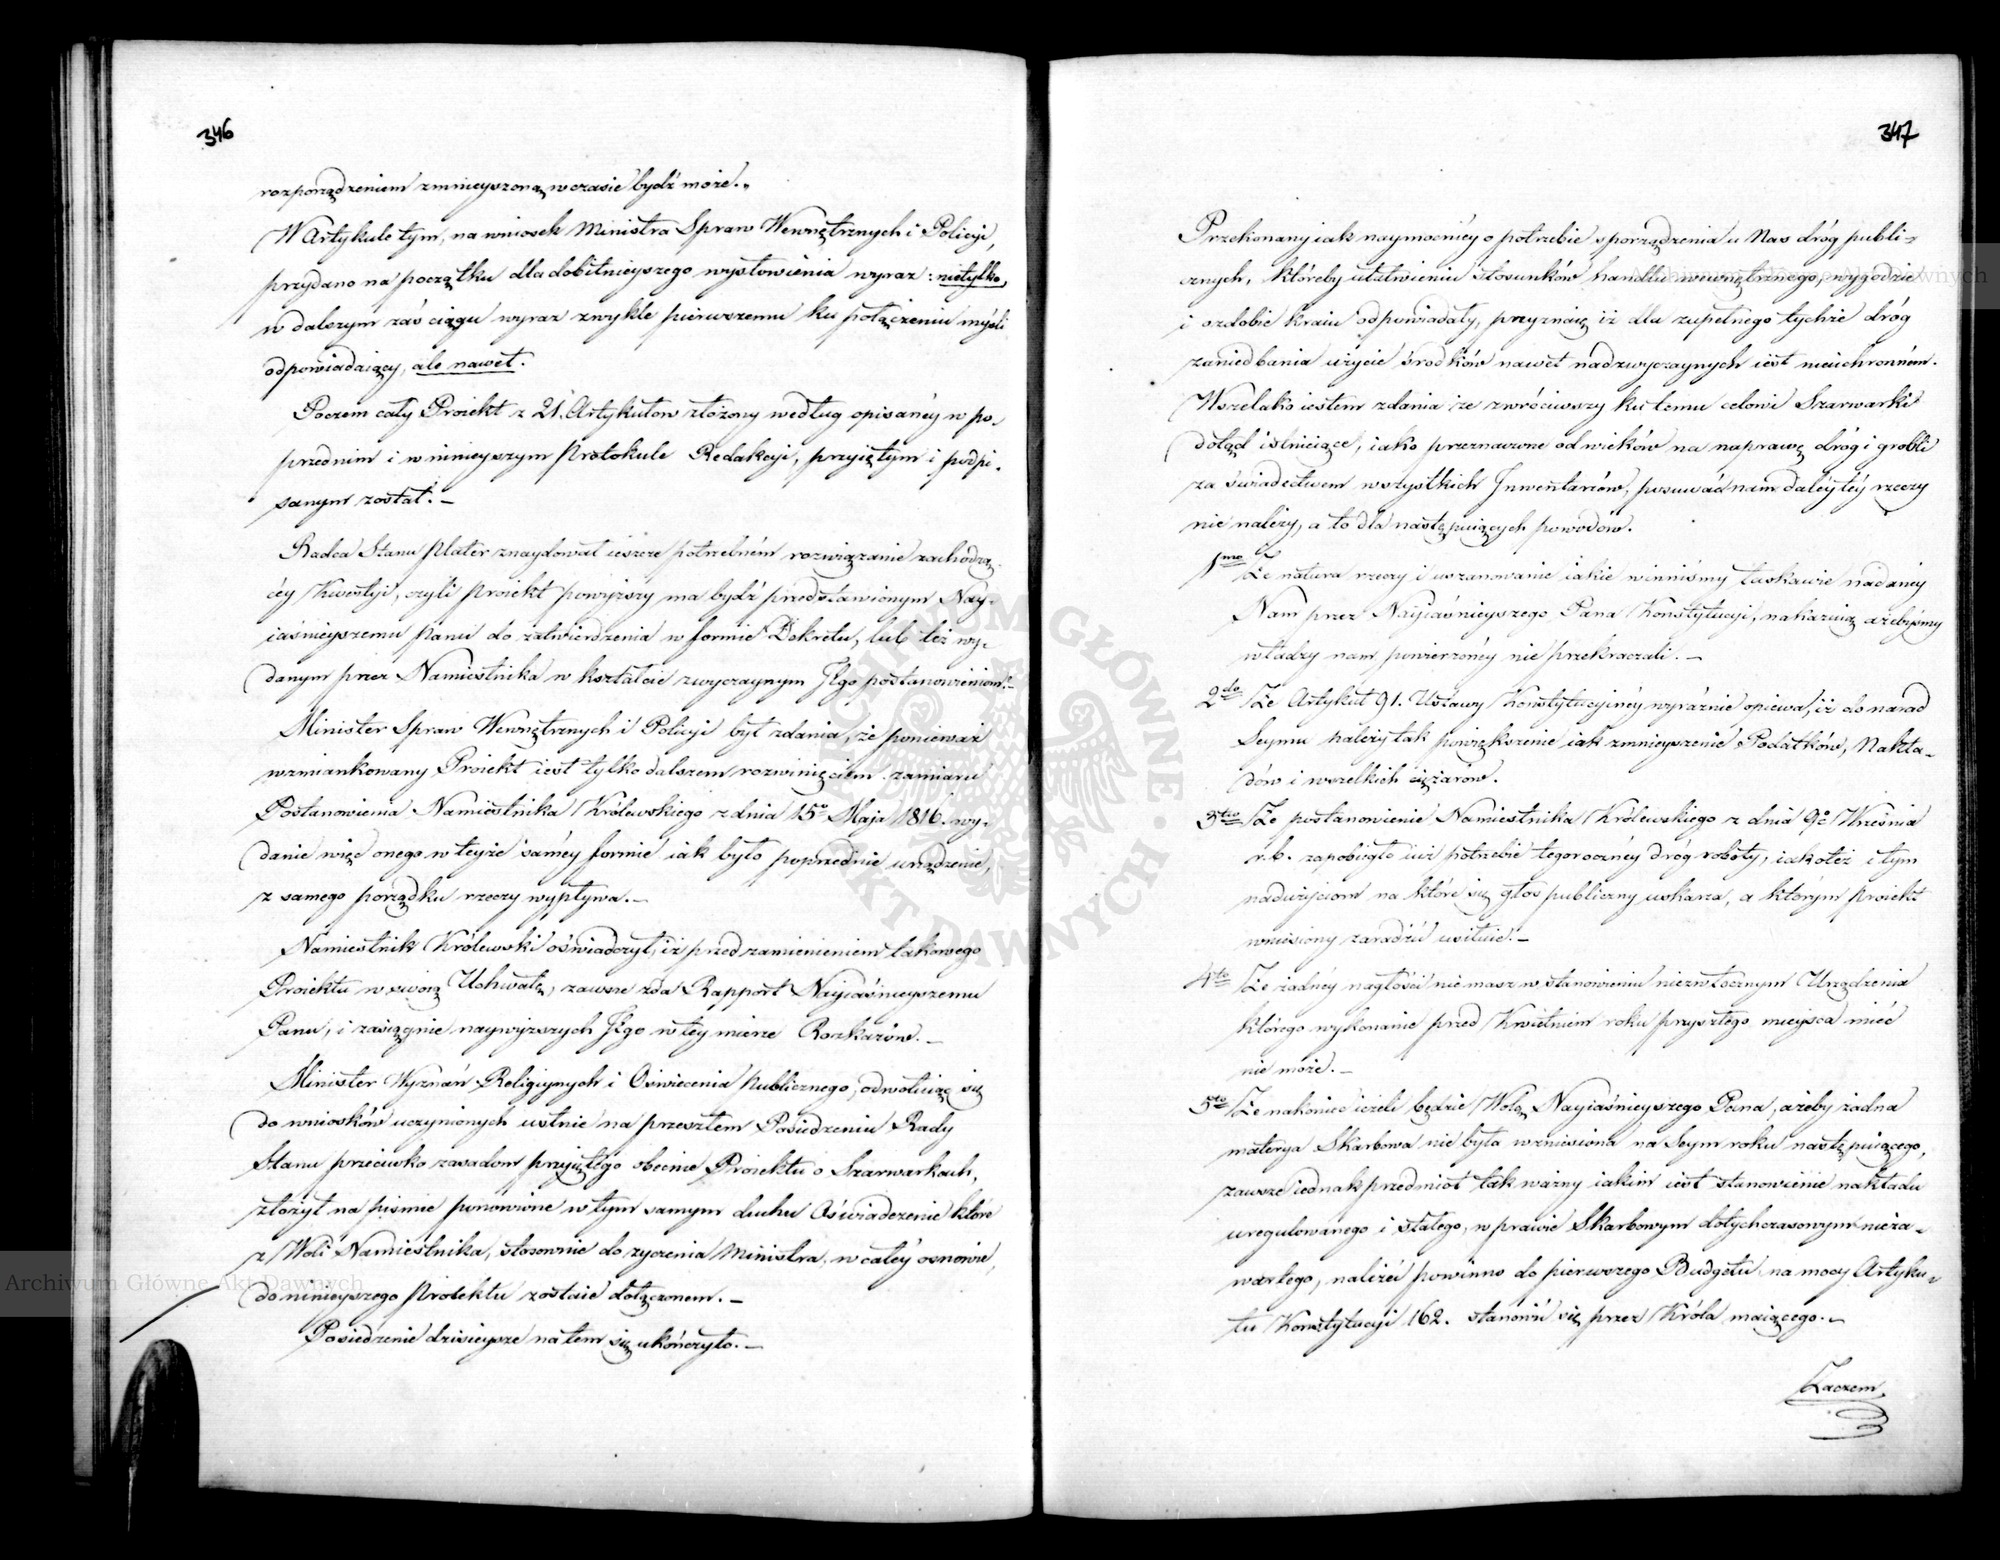 346
rozporządzeniem zmnieyszoną w czasie bydź może.„
W Artykule tym, na wniosek Ministra Spraw Wewnętrznych i Policyi,
przydano na początku dla dobitnieyszego wysłowienia wyraz: nietylko,
w dalszym zaś ciągu wyraz zwykle pierwszemu ku połączeniu myśli
odpowiadaiący, ale nawet.
Poczem cały Proiekt z 21. Artykułow złożony według opisanéy w po-
przednim i w ninieyszym Protokule Redakcyi, przyiętym i podpi-
sanym został. –
Radca Stanu Plater znaydował ieszcze potrzebném rozwiązanie zachodzą-
céy Kwestyi, czyli Proiekt powyższy ma bydź przedstawionym Nay-
iaśnieyszemu Panu do zatwierdzenia w formie Dekretu, lub też wy-
danym przez Namiestnika w kształcie zwyczaynym Jego postanowieniom. –
Minister Spraw Wewnętrznych i Policyi był zdania, że ponieważ
wzmiankowany Proiekt iest tylko dalszem rozwinięciem zamiaru
Postanowienia Namiestnika Królewskiego z dnia 15º Maja 1816. wy-
danie więc onego w teyże saméy formie iak było poprzednie urządzenie,
z samego porządku rzeczy wypływa. –
Namiestnik Królewski oświadczył, iż przed zamienieniem takowego
Proiektu w swoią Uchwałę, zawsze zda Rapport Nayiaśnieyszemu
Panu, i zasiągnie naywyższych Jego w tey mierze Rozkazów. –
Minister Wyznań Religiynych i Oświecenia Publicznego, odwołuiąc się
do wniosków uczynionych ustnie na przeszłem Posiedzeniu Rady
Stanu przeciwko zasadom przyiętego obecnie Proiektu o Szarwarkach,
złożył na piśmie ponowione w tym samym duchu Oświadczenie które
z Woli Namiestnika, stosownie do życzenia Ministra, w całéy osnowie,
do ninieyszego Proiektu zostaie dołączonem. –
Posiedzenie dzisieysze na tem się ukończyło. –
347
Przekonany iak naymocniéy o potrzebie sporządzenia u Nas dróg publi-
cznych, któreby ułatwieniu stosunków handlu wewnętrznego, wygodzie
i ozdobie kraiu odpowiadały, przyznaię iż dla zupełnego tychże dróg
zaniedbania użycie środków nawet nadzwyczaynych iest nieuchronném.
Wszelako iestem zdania że zwróciwszy ku temu celowi Szarwarki
dotąd istnieiące, iako przeznaczone od wieków na naprawę dróg i grobli
za świadectwem wszystkich Jnwentarzów, posuwać nam daléy téy rzeczy
nie należy, a to dla następuiących powodów.
1mo Że natura rzeczy i uszanowanie iakie winniśmy łaskawie nadanéy
Nam przez Nayiaśnieyszego Pana Konstytucyi, nakazuią ażebyśmy
władzy nam powierzonéy nie przekraczali. –
2do Że Artykuł 91. Ustawy Konstytucyinéy wyraźnie opiewa, iż do narad
Seymu należy tak powiększenie iak zmnieyszenie Podatków, Nakła-
dów i wszelkich ciężarow.
3tio Że postanowienie Namiestnika Królewskiego z dnia 9º Września
r. b. zapobiegło iuż potrzebie tegorocznéy dróg roboty, iako też i tym
nadużyciom na które się głos publiczny uskarza, a którym proiekt
wniesiony zaradźić usiłuie. –
4to Że żadnéy nagłości nie masz w stanowieniu niezwłocznym Urządzenia
którego wykonanie przed Kwietniem roku przyszłego mieysca mieć
nie może. –
5to Że nakoniec ieżeli będzie Wolą Nayiaśnieyszego Pana, ażeby żadna
materya Skarbowa nie była wzniesiona na Seym roku następuiącego,
zawsze iednak przedmiot tak ważny iakim iest stanowienie nakładu
uregulowanego i stałego, w prawie Skarbowym dotychczasowym nieza-
wartego, należéć powinno do pierwszego Budgetu na mocy Artyku-
łu Konstytucyi 162. stanowić się przez Króla maiącego. –
Zaczem
Archiwum Główne Akt Dawnych
Archiwum Główne Akt Dawnych
ARCHIWUM GŁÓWNE AKT DAWNYCH